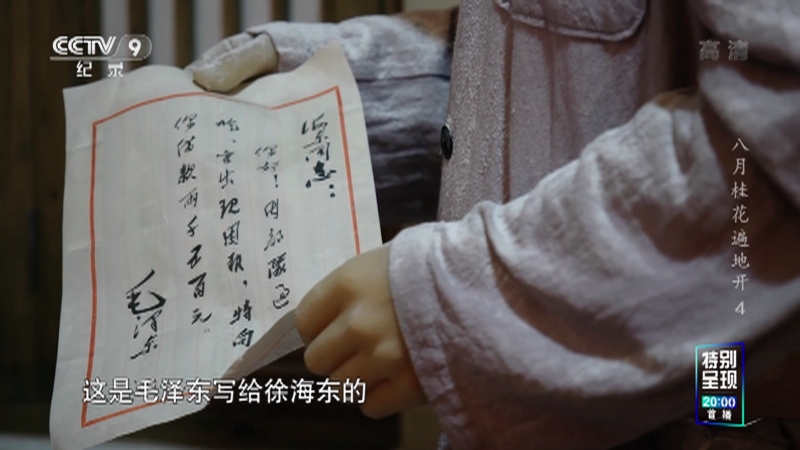 CCTV 9
纪录
高清
八月桂花遍地开 4
海东同志：
你好！因部队过
冬出现困难，特向
你借款两千五百元。
毛泽东
这是毛泽东写给徐海东的
特别
呈现
20:00
首播